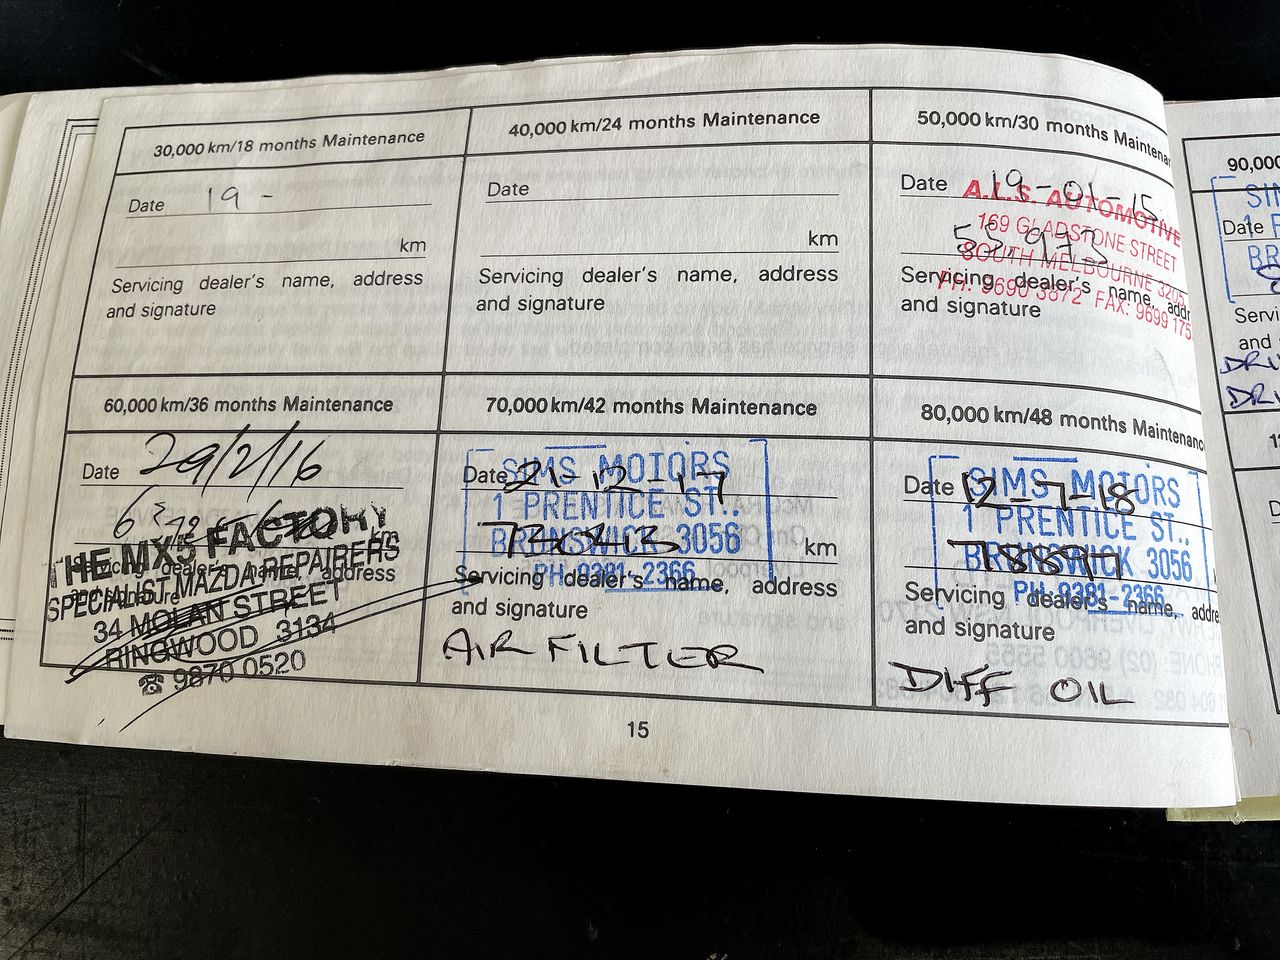 30,000 km/18 months Maintenance
Date 19 -
km
Servicing dealer's name, address
and signature
40,000 km/24 months Maintenance
Date
km
Servicing dealer's name, address
and signature
50,000 km/30 months Maintenan
Date 19-01-15
A.L.S. AUTOMOTIVE
169 GLADSTONE STREET
55,973
SOUTH MELBOURNE 3205
Servicing dealer's name, addr
PH: 9690 3872 FAX: 9699 175
and signature
60,000 km/36 months Maintenance
Date 29/2/16
km
THE MX5 FACTORY
SPECIALIST MAZDA REPAIRERS
Servicing dealer's name, address
and signature
34 MOLAN STREET
RINGWOOD 3134
☎ 9870 0520
70,000 km/42 months Maintenance
Date 21-12-17
SIMS MOTORS
1 PRENTICE ST.,
BRUNSWICK 3056
km
PH 9381-2366
Servicing dealer's name, address
and signature
AIR FILTER
80,000 km/48 months Maintenanc
Date 12-7-18
SIMS MOTORS
1 PRENTICE ST.,
BRUNSWICK 3056
78897
PH-9381-2366
Servicing dealer's name, addre
and signature
DIFF OIL
15
90,000
SIM
Date
BR
Servi
and
DRI
DRI